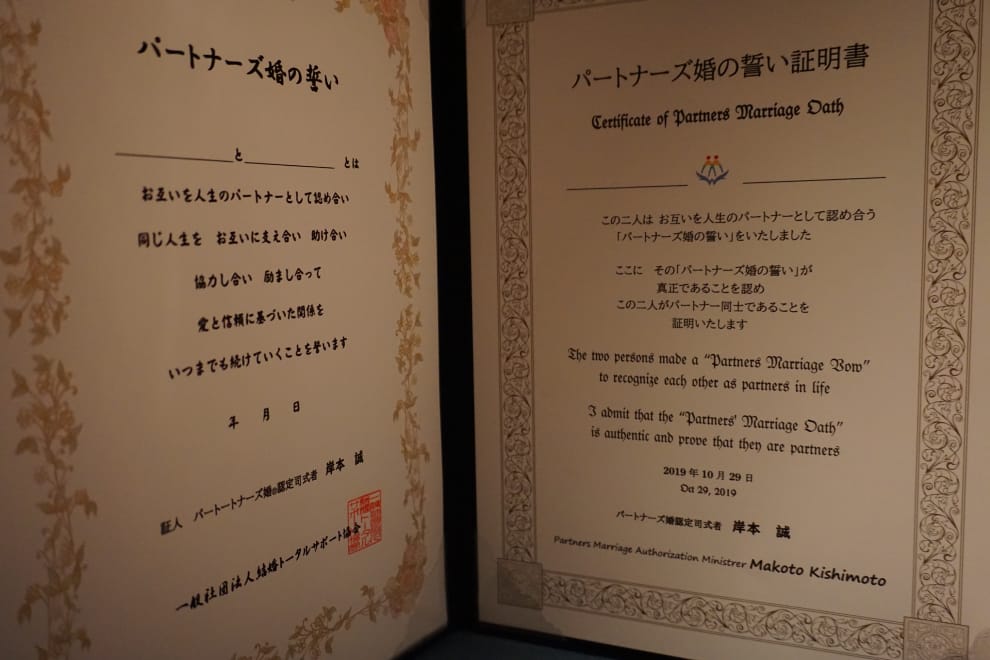 パートナーズ婚の誓い
と とは
お互いを人生のパートナーとして認め合い
同じ人生を お互いに支え合い 助け合い
協力し合い 励まし合って
愛と信頼に基づいた関係を
いつまでも続けていくことを誓います
年 月 日
証人 パートートナーズ婚®認定司式者 岸本 誠
一般社団法人結婚トータルサポート協会
パートナーズ婚の誓い証明書
Certificate of Partners Marriage Oath
この二人は お互いを人生のパートナーとして認め合う
「パートナーズ婚の誓い」をいたしました
ここに その「パートナーズ婚の誓い」が
真正であることを認め
この二人がパートナー同士であることを
証明いたします
The two persons made a "Partners Marriage Vow"
to recognize each other as partners in life
I admit that the "Partners' Marriage Oath"
is authentic and prove that they are partners
2019 年 10 月 29 日
Oct 29, 2019
パートナーズ婚認定司式者 岸本 誠
Partners Marriage Authorization Ministrer Makoto Kishimoto